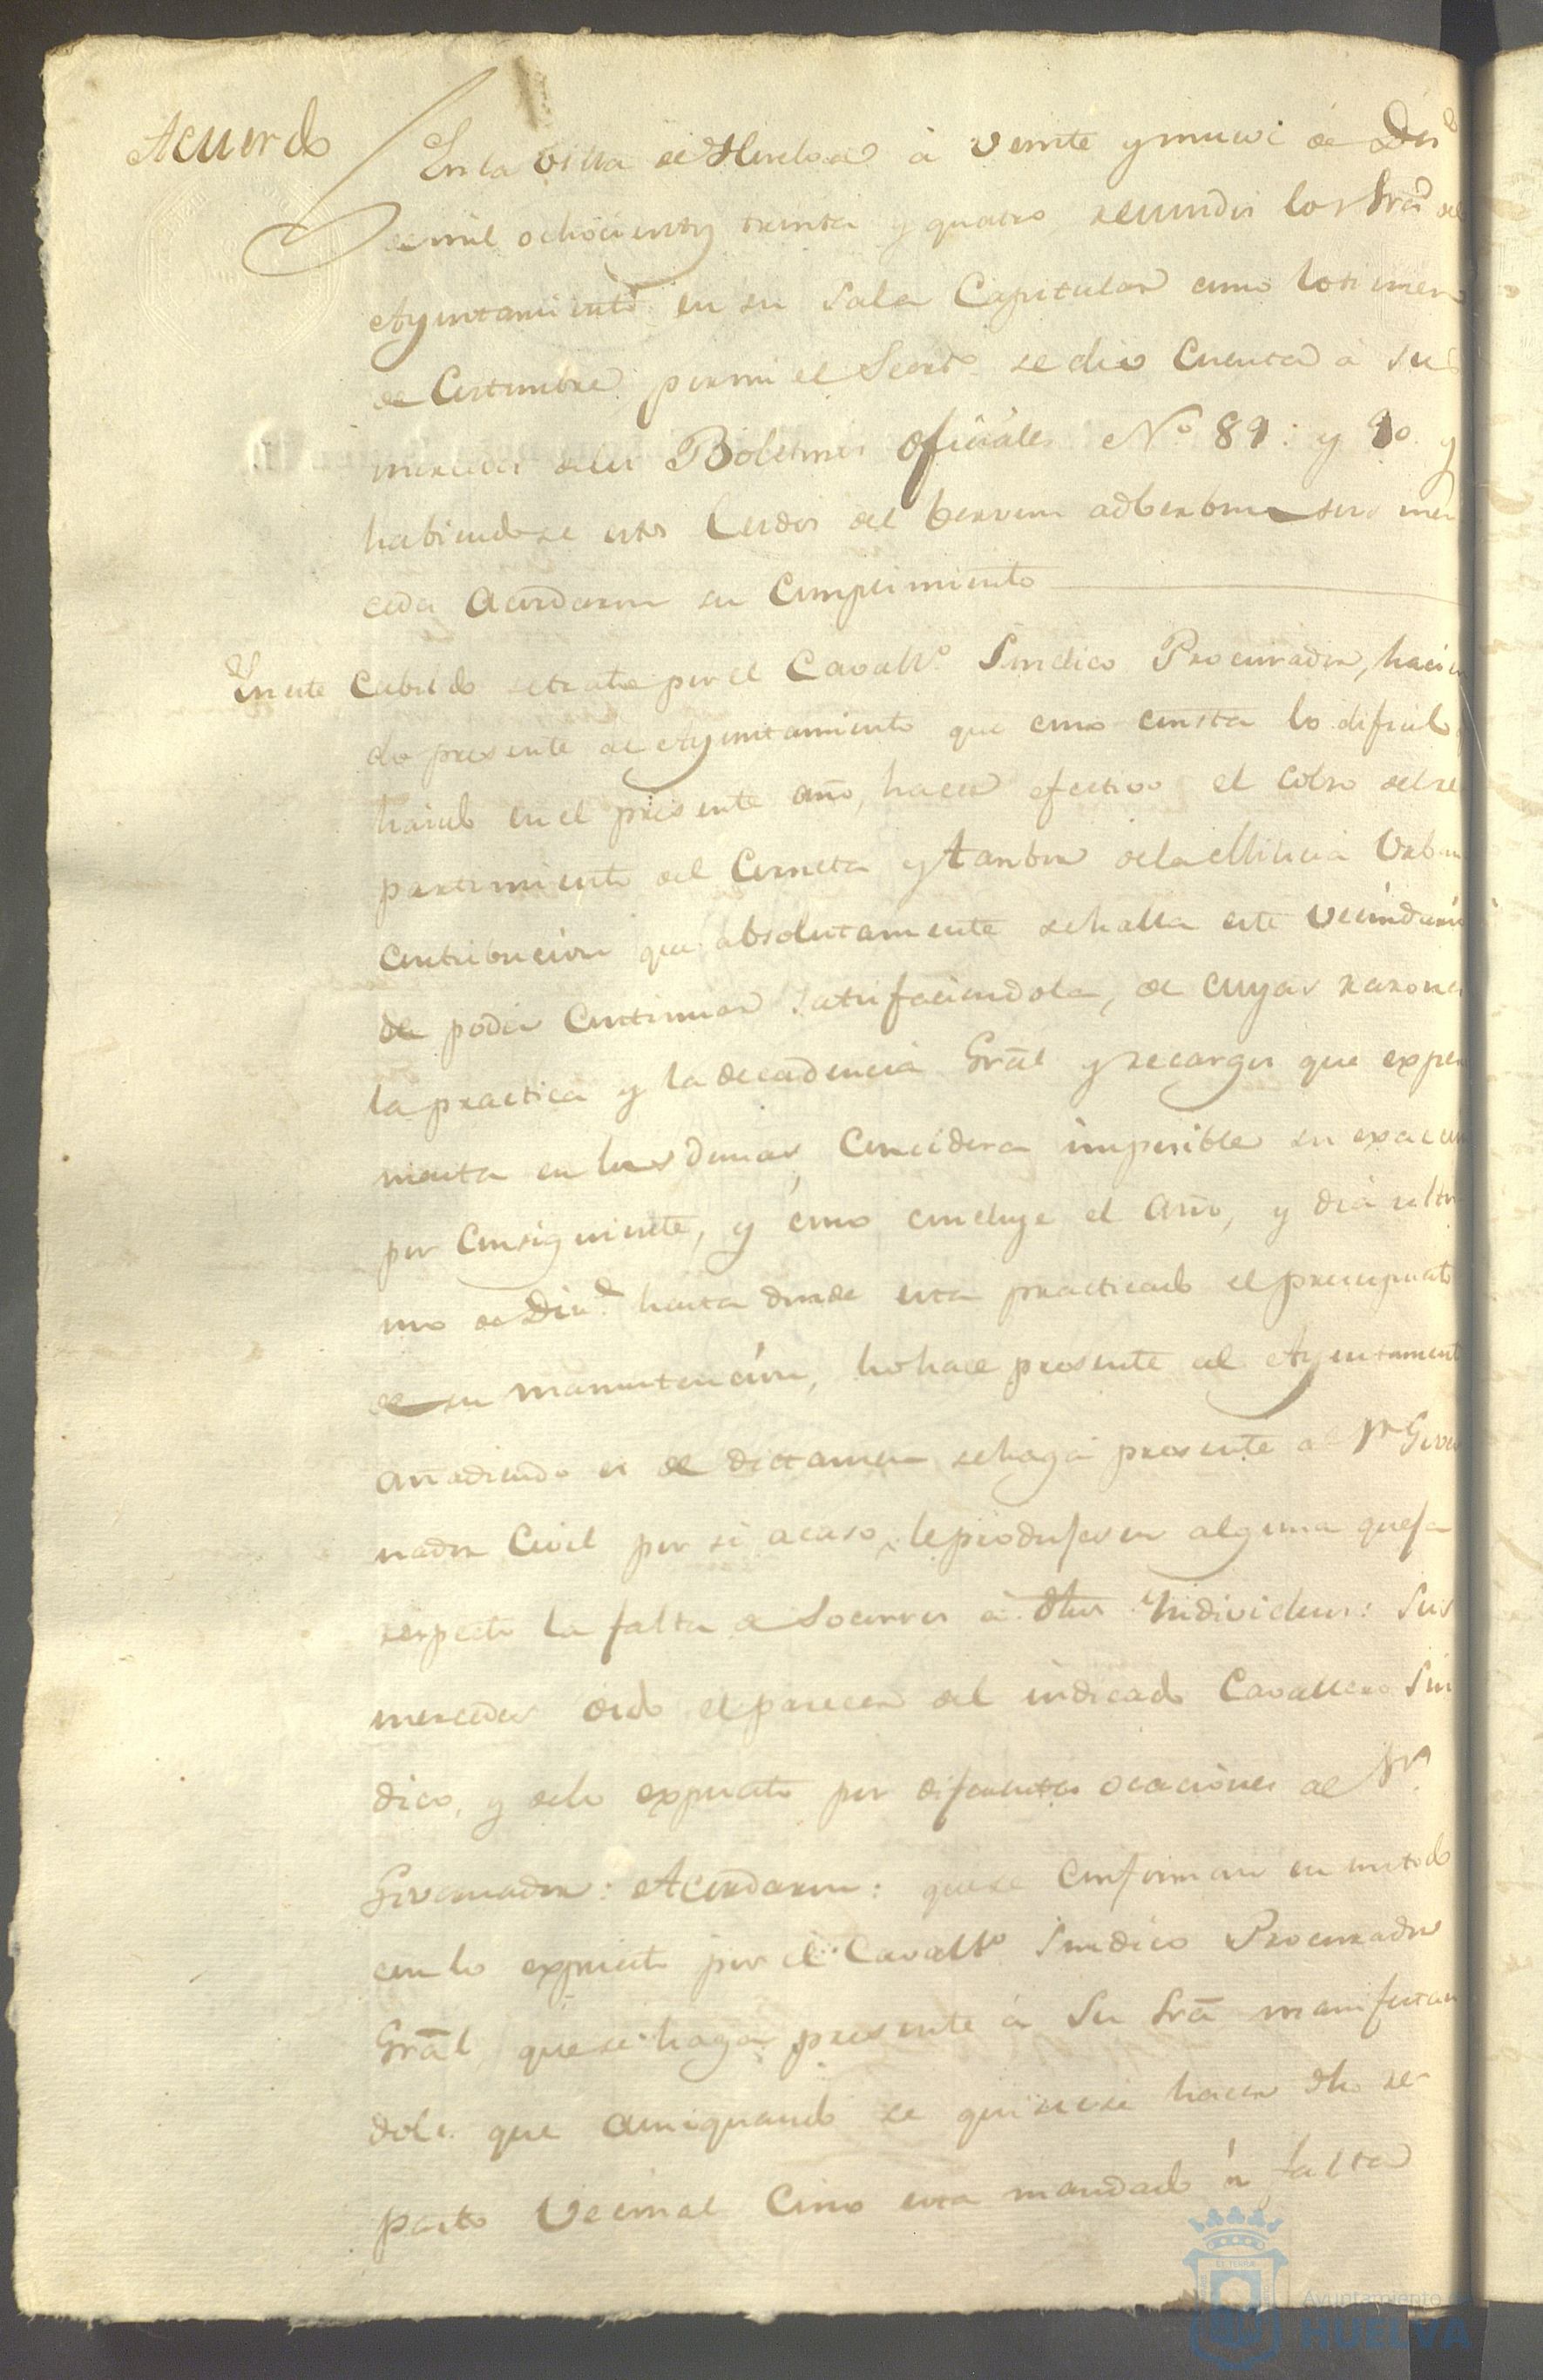 Acuerdo
En la Villa de Huelva á veinte y nueve de Dic.e
de mil ochocientos treinta y quatro reunidos los Sres del
Ayuntamiento en su Sala Capitular como lo tienen
de Costumbre por mi el Secret.o se dio Cuenta á sus
mercedes de los Boletines Oficiáles N.o 89: y 90. y
habiendose estos leidos del bervun adberbum sus mer
cedes Acordaron su Cumplimiento
En este Cabildo se trato por el Cavall.o Sindico Procurador, hacien
do presente al Ayuntamiento que como consta lo dificil
haido en el presente año, hacer efectivo el Cobro del re
partimiento del Corneta y tanbor de la Milicia Urbana
contribucion que absolutamente se halla este Vecindario
de poder Continuar satisfaciendola, de cuyas razones
la practica y la decadencia Gral y recargos que experi
menta en los demas, Concidera imposible su exaccion
por Consiguiente, y como concluye el año, y dia ulti
mo de Dic.e hasta donde esta practicado el presupuesto
de su manutencion, lo hace presente al Ayuntamiento
anadiendo es de dictamen se haga presente al Sr Gover
nador Civil por si acaso le produjesen alguna queja
respecto la falta de Socorros á dhos Individuos: Sus
mercedes oido el parecer del indicado Cavallero Sin
dico, y de lo expuesto por diferentes ocaciones al Sr.
Governador: Acordaron: que se Conforman en un todo
con lo expuesto por el Cavall.o Sindico Procurador
Gral, que se haga presente á Su Sria manifestan
dole que aun quando se quisiese hacer dho re
parto Vecinal Como esta mandado á falta
Ayuntamiento de
HUELVA